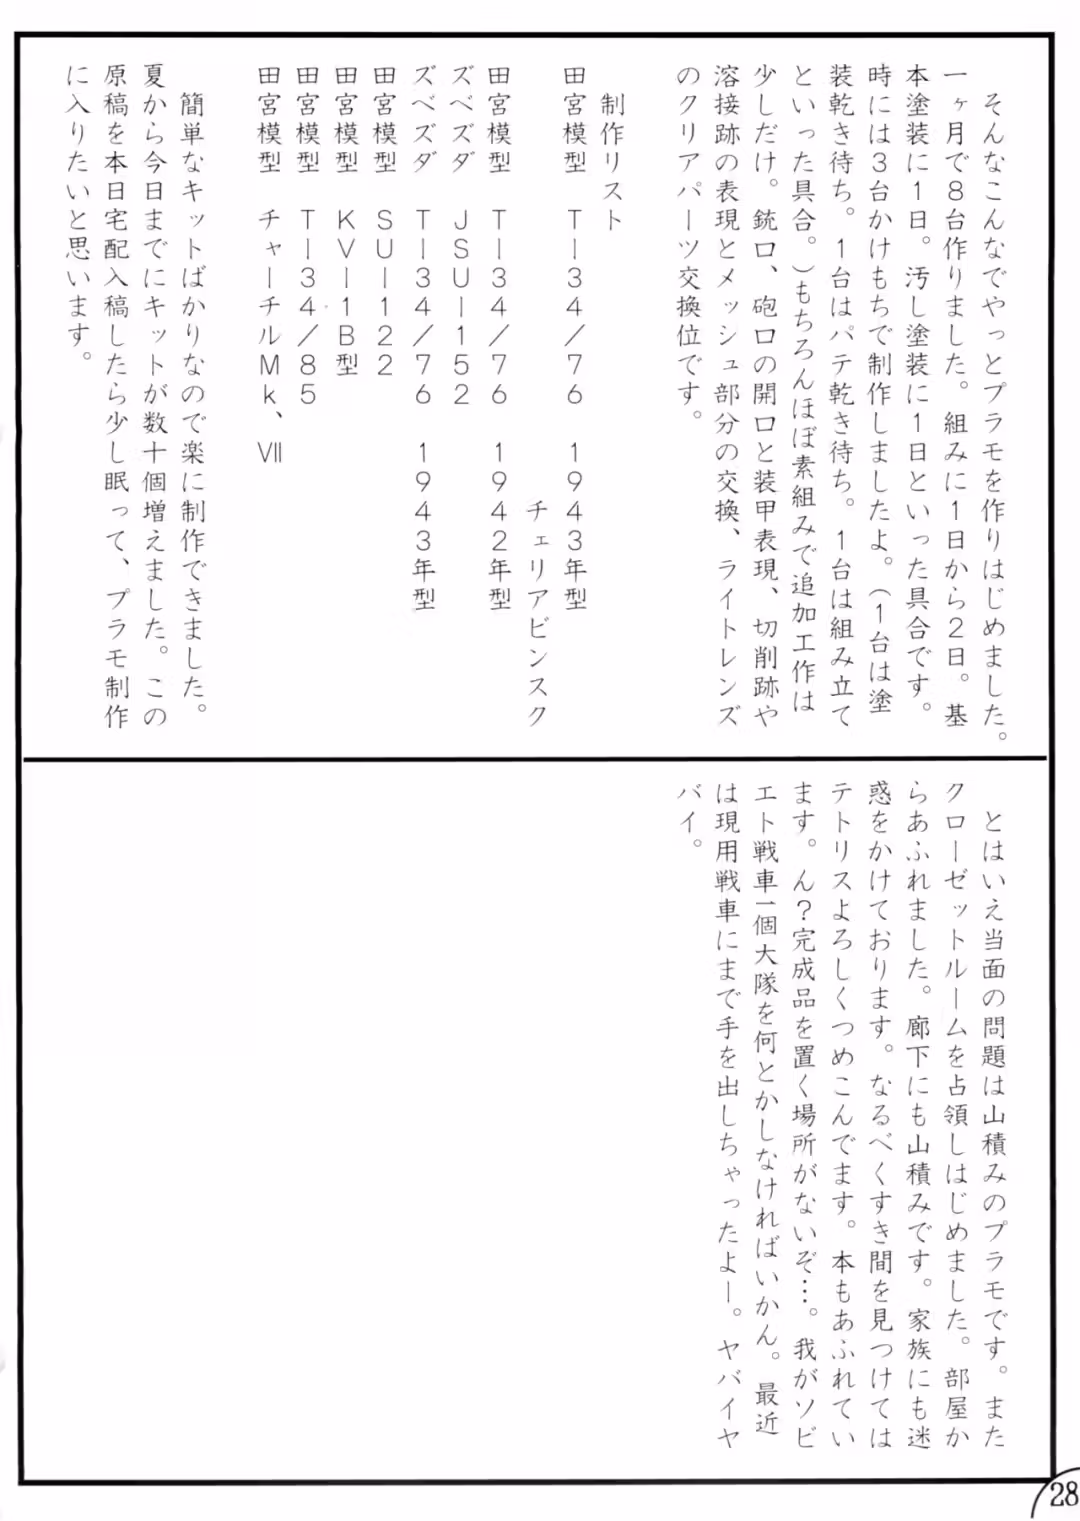 そんなこんなでやっとプラモを作りはじめました。
一ヶ月で８台作りました。組みに１日から２日。基
本塗装に１日。汚し塗装に１日といった具合です。
時には３台かけもちで制作しましたよ。（１台は塗
装乾き待ち。１台はパテ乾き待ち。１台は組み立て
といった具合。）もちろんほぼ素組みで追加工作は
少しだけ。銃口、砲口の開口と装甲表現、切削跡や
溶接跡の表現とメッシュ部分の交換、ライトレンズ
のクリアパーツ交換位です。
制作リスト
田宮模型　Ｔ－３４／７６　１９４３年型
チェリアビンスク
田宮模型　Ｔ－３４／７６　１９４２年型
ズベズダ　ＪＳＵ－１５２
ズベズダ　Ｔ－３４／７６　１９４３年型
田宮模型　ＳＵ－１２２
田宮模型　ＫＶ－１Ｂ型
田宮模型　Ｔ－３４／８５
田宮模型　チャーチルＭｋ、Ⅶ
簡単なキットばかりなので楽に制作できました。
夏から今日までにキットが数十個増えました。この
原稿を本日宅配入稿したら少し眠って、プラモ制作
に入りたいと思います。
とはいえ当面の問題は山積みのプラモです。また
クローゼットルームを占領しはじめました。部屋か
らあふれました。廊下にも山積みです。家族にも迷
惑をかけております。なるべくすき間を見つけては
テトリスよろしくつめこんでます。本もあふれてい
ます。ん？完成品を置く場所がないぞ…。我がソビ
エト戦車一個大隊を何とかしなければいかん。最近
は現用戦車にまで手を出しちゃったよー。ヤバイヤ
バイ。
28